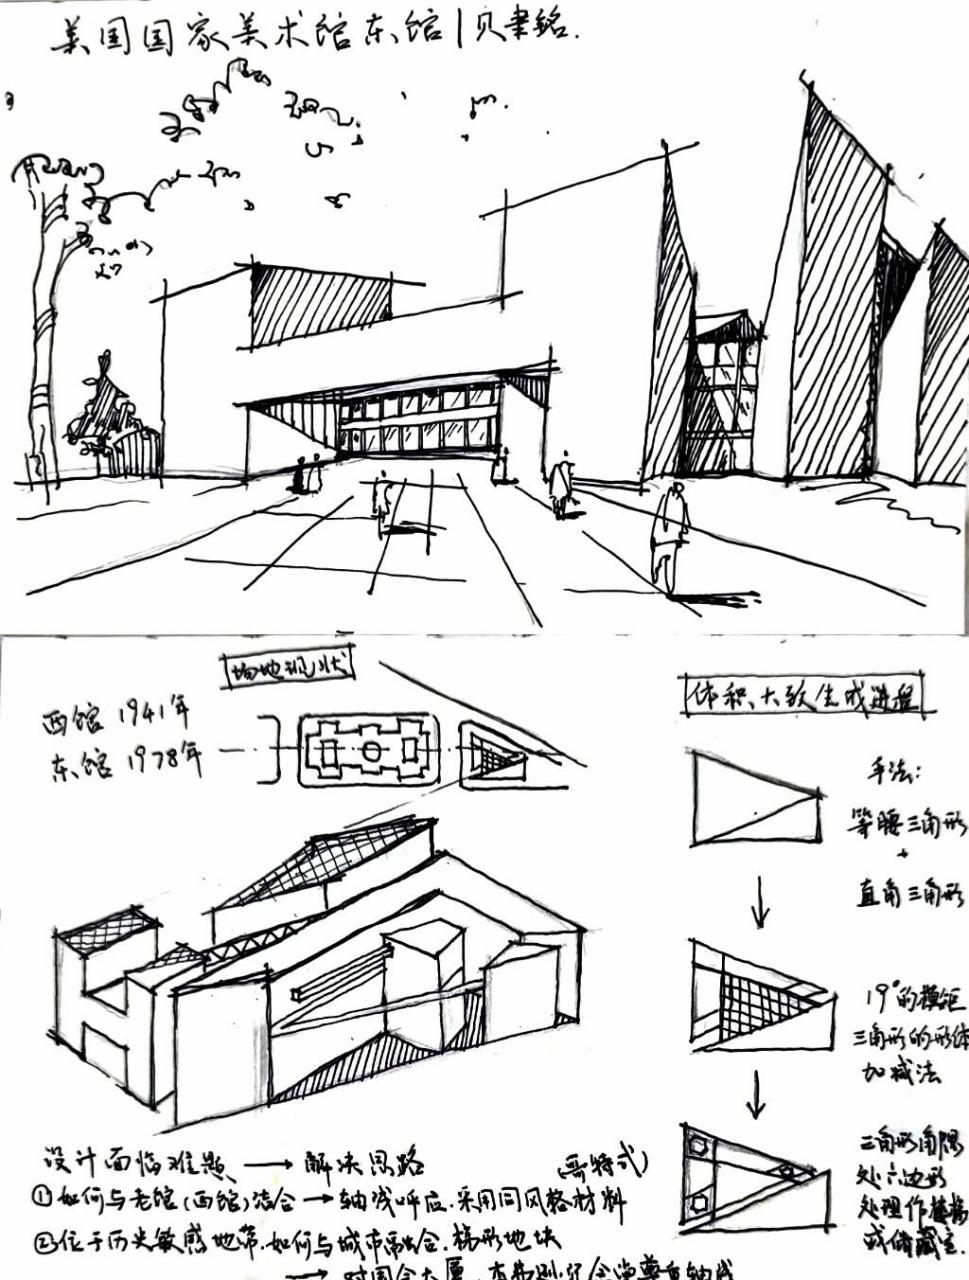 美国国家美术馆东馆|贝聿铭.
场地现状
西馆 1941年
东馆 1978年
体积大致生成进程
手法:
等腰三角形
+
直角三角形
19°的模距
三角形的形体
加减法
三角形角隅
处六边形
处理作楼梯
或储藏室.
设计面临难题 → 解决思路
(哥特式)
①如何与老馆(西馆)结合 → 轴线呼应.采用同风格材料
②位于历史敏感地带.如何与城市结合.梯形地块
→ 对国会大厦、